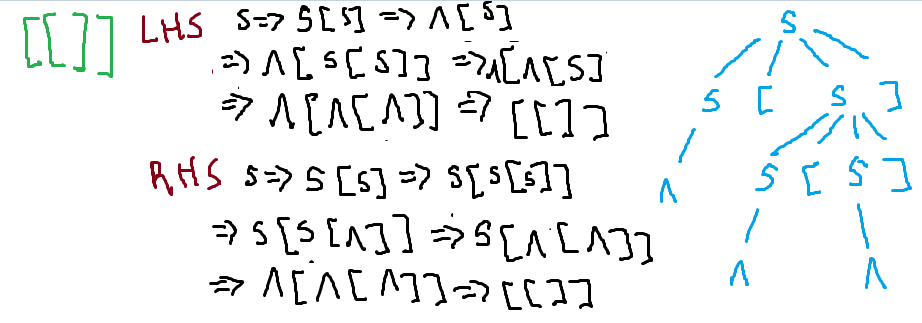 [[]]
LHS S => S[S] => Λ[S]
=> Λ[S[S]] => Λ[Λ[S]
=> Λ[Λ[Λ]] => [[]]
RHS S => S[S] => S[S[S]]
=> S[S[Λ]] => S[Λ[Λ]]
=> Λ[Λ[Λ]] => [[]]
S
S [ S ]
Λ S [ S ]
Λ Λ